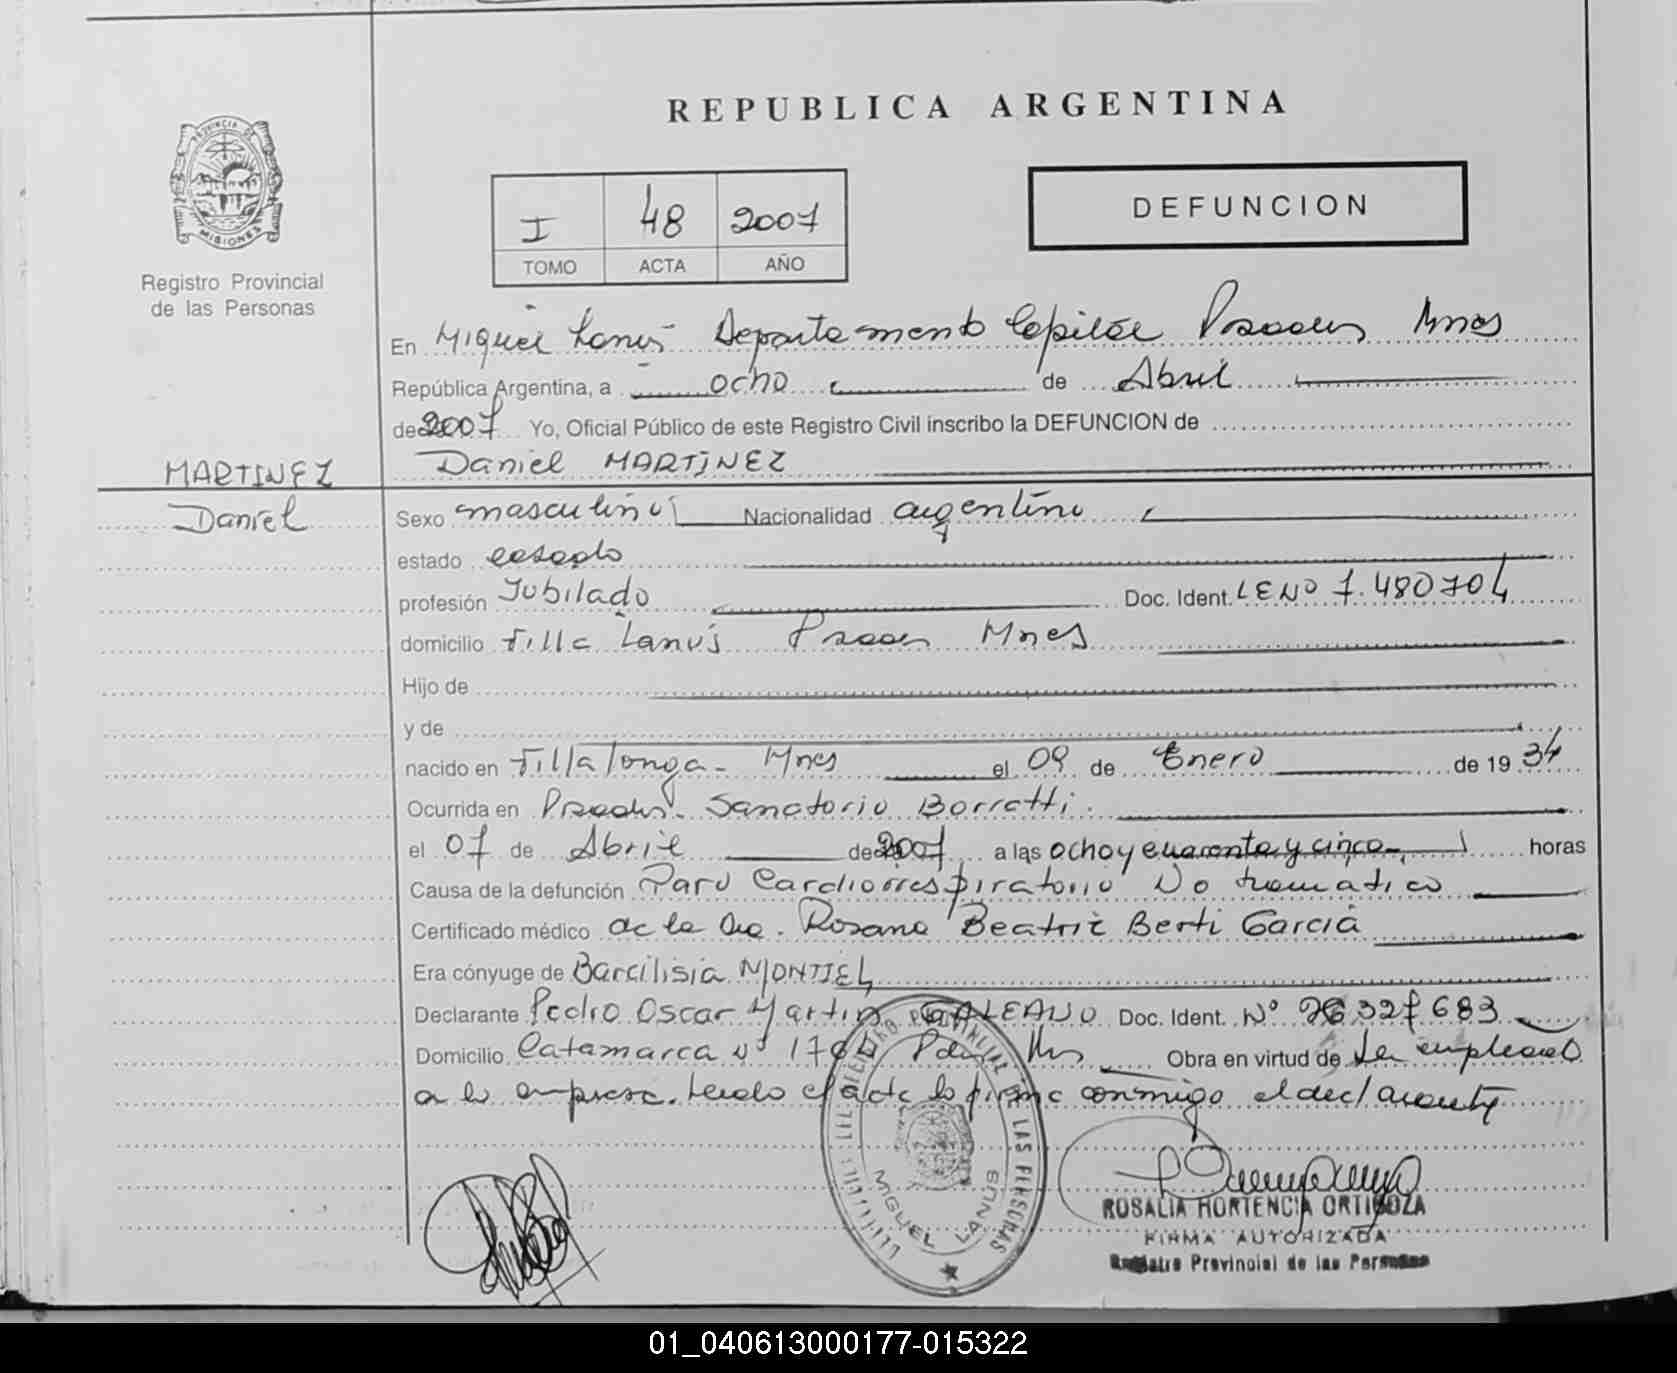 REPUBLICA ARGENTINA
PROVINCIA DE
MISIONES
Registro Provincial
de las Personas
I 48 2007
TOMO ACTA AÑO
DEFUNCION
En Miguel Lanús Departamento Capital Posadas Mnes
República Argentina, a ocho de Abril
de 2007 Yo, Oficial Público de este Registro Civil inscribo la DEFUNCION de
MARTINEZ
Daniel
Daniel MARTINEZ
Sexo masculino Nacionalidad argentino
estado casado
profesión Jubilado Doc. Ident. LE Nº 7.480704
domicilio Villa Lanús Posadas Mnes
Hijo de
y de
nacido en Villalonga - Mnes el 09 de Enero de 1934
Ocurrida en Posadas. Sanatorio Borratti.
el 07 de Abril de 2007 a las ocho y cuarenta y cinco horas
Causa de la defunción Paro Cardiorrespiratorio No traumatico
Certificado médico de la Dra. Rosana Beatriz Berti Garcia
Era cónyuge de Barcilisia MONTIEL
Declarante Pedro Oscar Martin GALEANO Doc. Ident. Nº 26327683
Domicilio Catamarca Nº Pdas Mns Obra en virtud de ser empleado
a la empresa. Leido el acta la firma conmigo el declarante
MIGUEL LANUS
ROSALIA HORTENCIA ORTIGOZA
FIRMA AUTORIZADA
Registro Provincial de las Personas
01_040613000177-015322